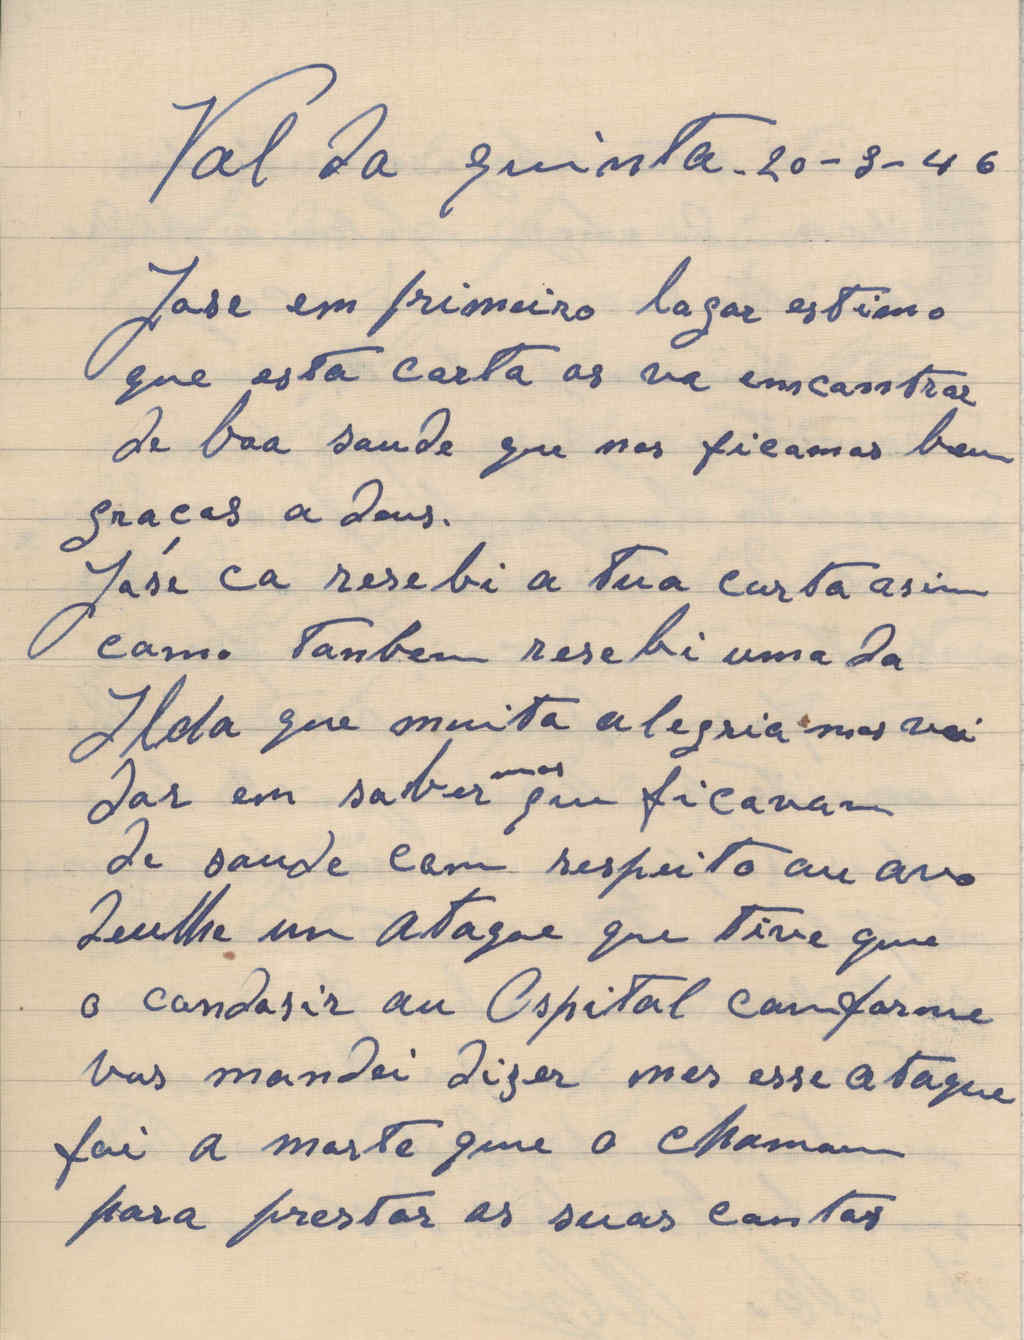 Val da quinta. 20-3-46
Jose em primeiro lugar estimo
que esta carta os va emcomtrar
de boa saude que nos ficamos bem
graças a Deus.
José ca resebi a tua carta asim
como tanbem resebi uma da
Ilda que muita alegria nos vai
dar em saber mos que ficavam
de saude com respeito au avo
deulhe um ataque que tive que
o condosir au Ospital comforme
vos mandei dizer mas esse ataque
foi a morte que o chamou
para prestar as suas contas